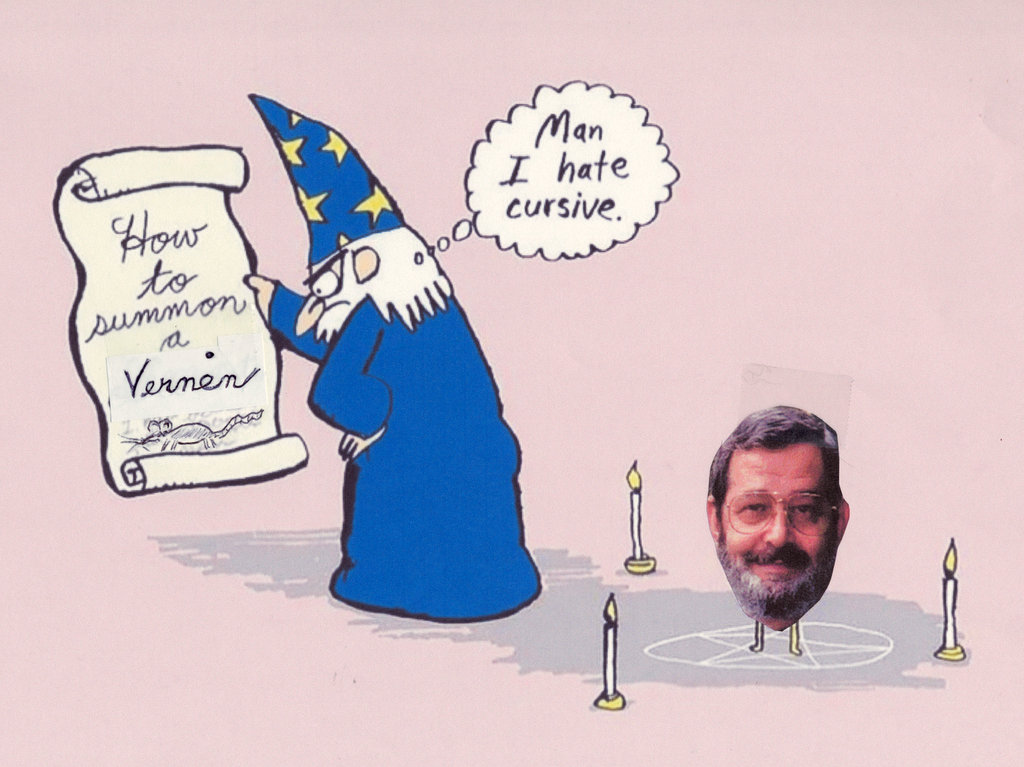 How
to
summon
a
Vernen
Man
I hate
cursive.